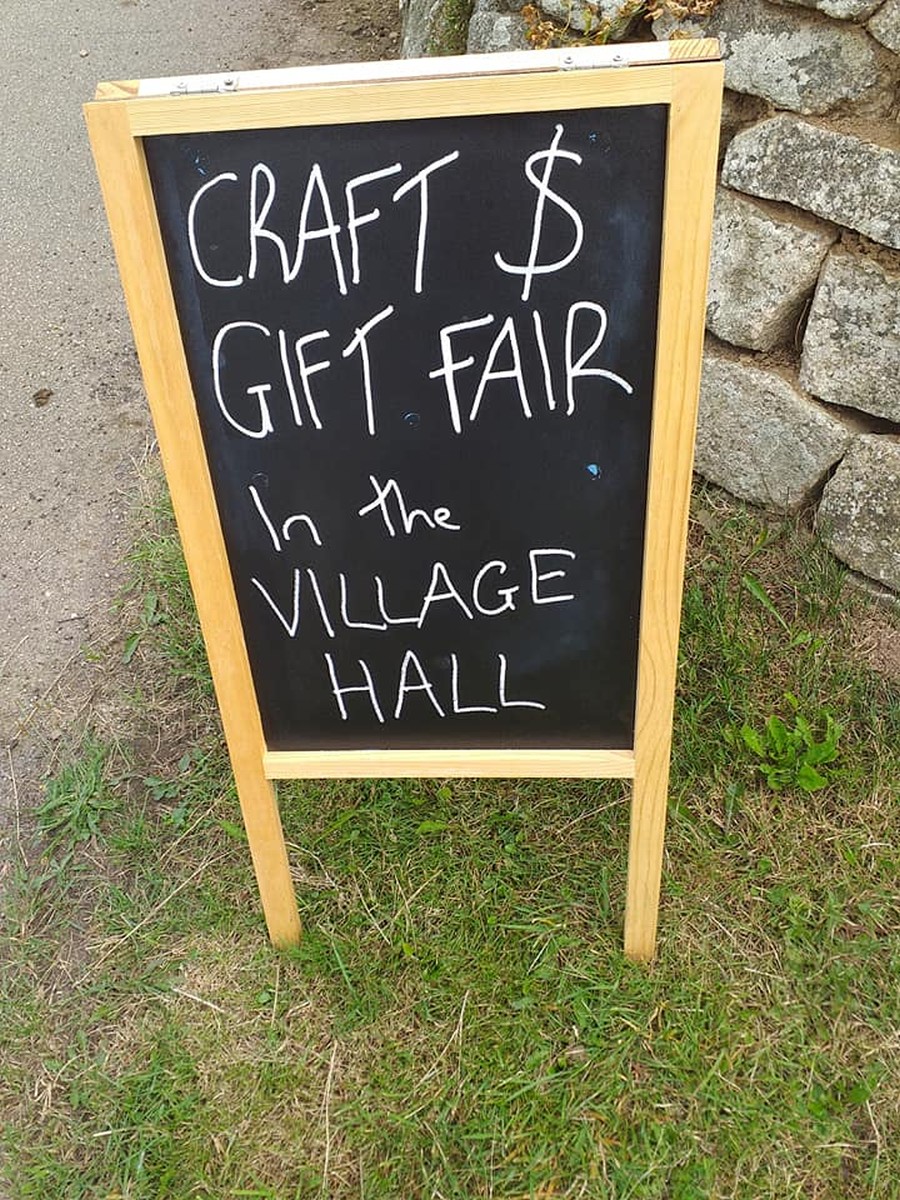 CRAFT $
GIFT FAIR
In the
VILLAGE
HALL